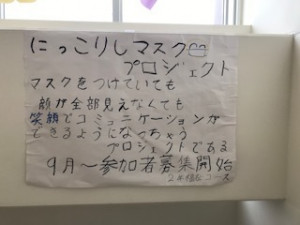 にっこりしマスク
プロジェクト
マスクをつけていても
顔が全部見えなくても
笑顔でコミュニケーションが
できるようになっちゃう
プロジェクトである
9月〜参加者募集開始